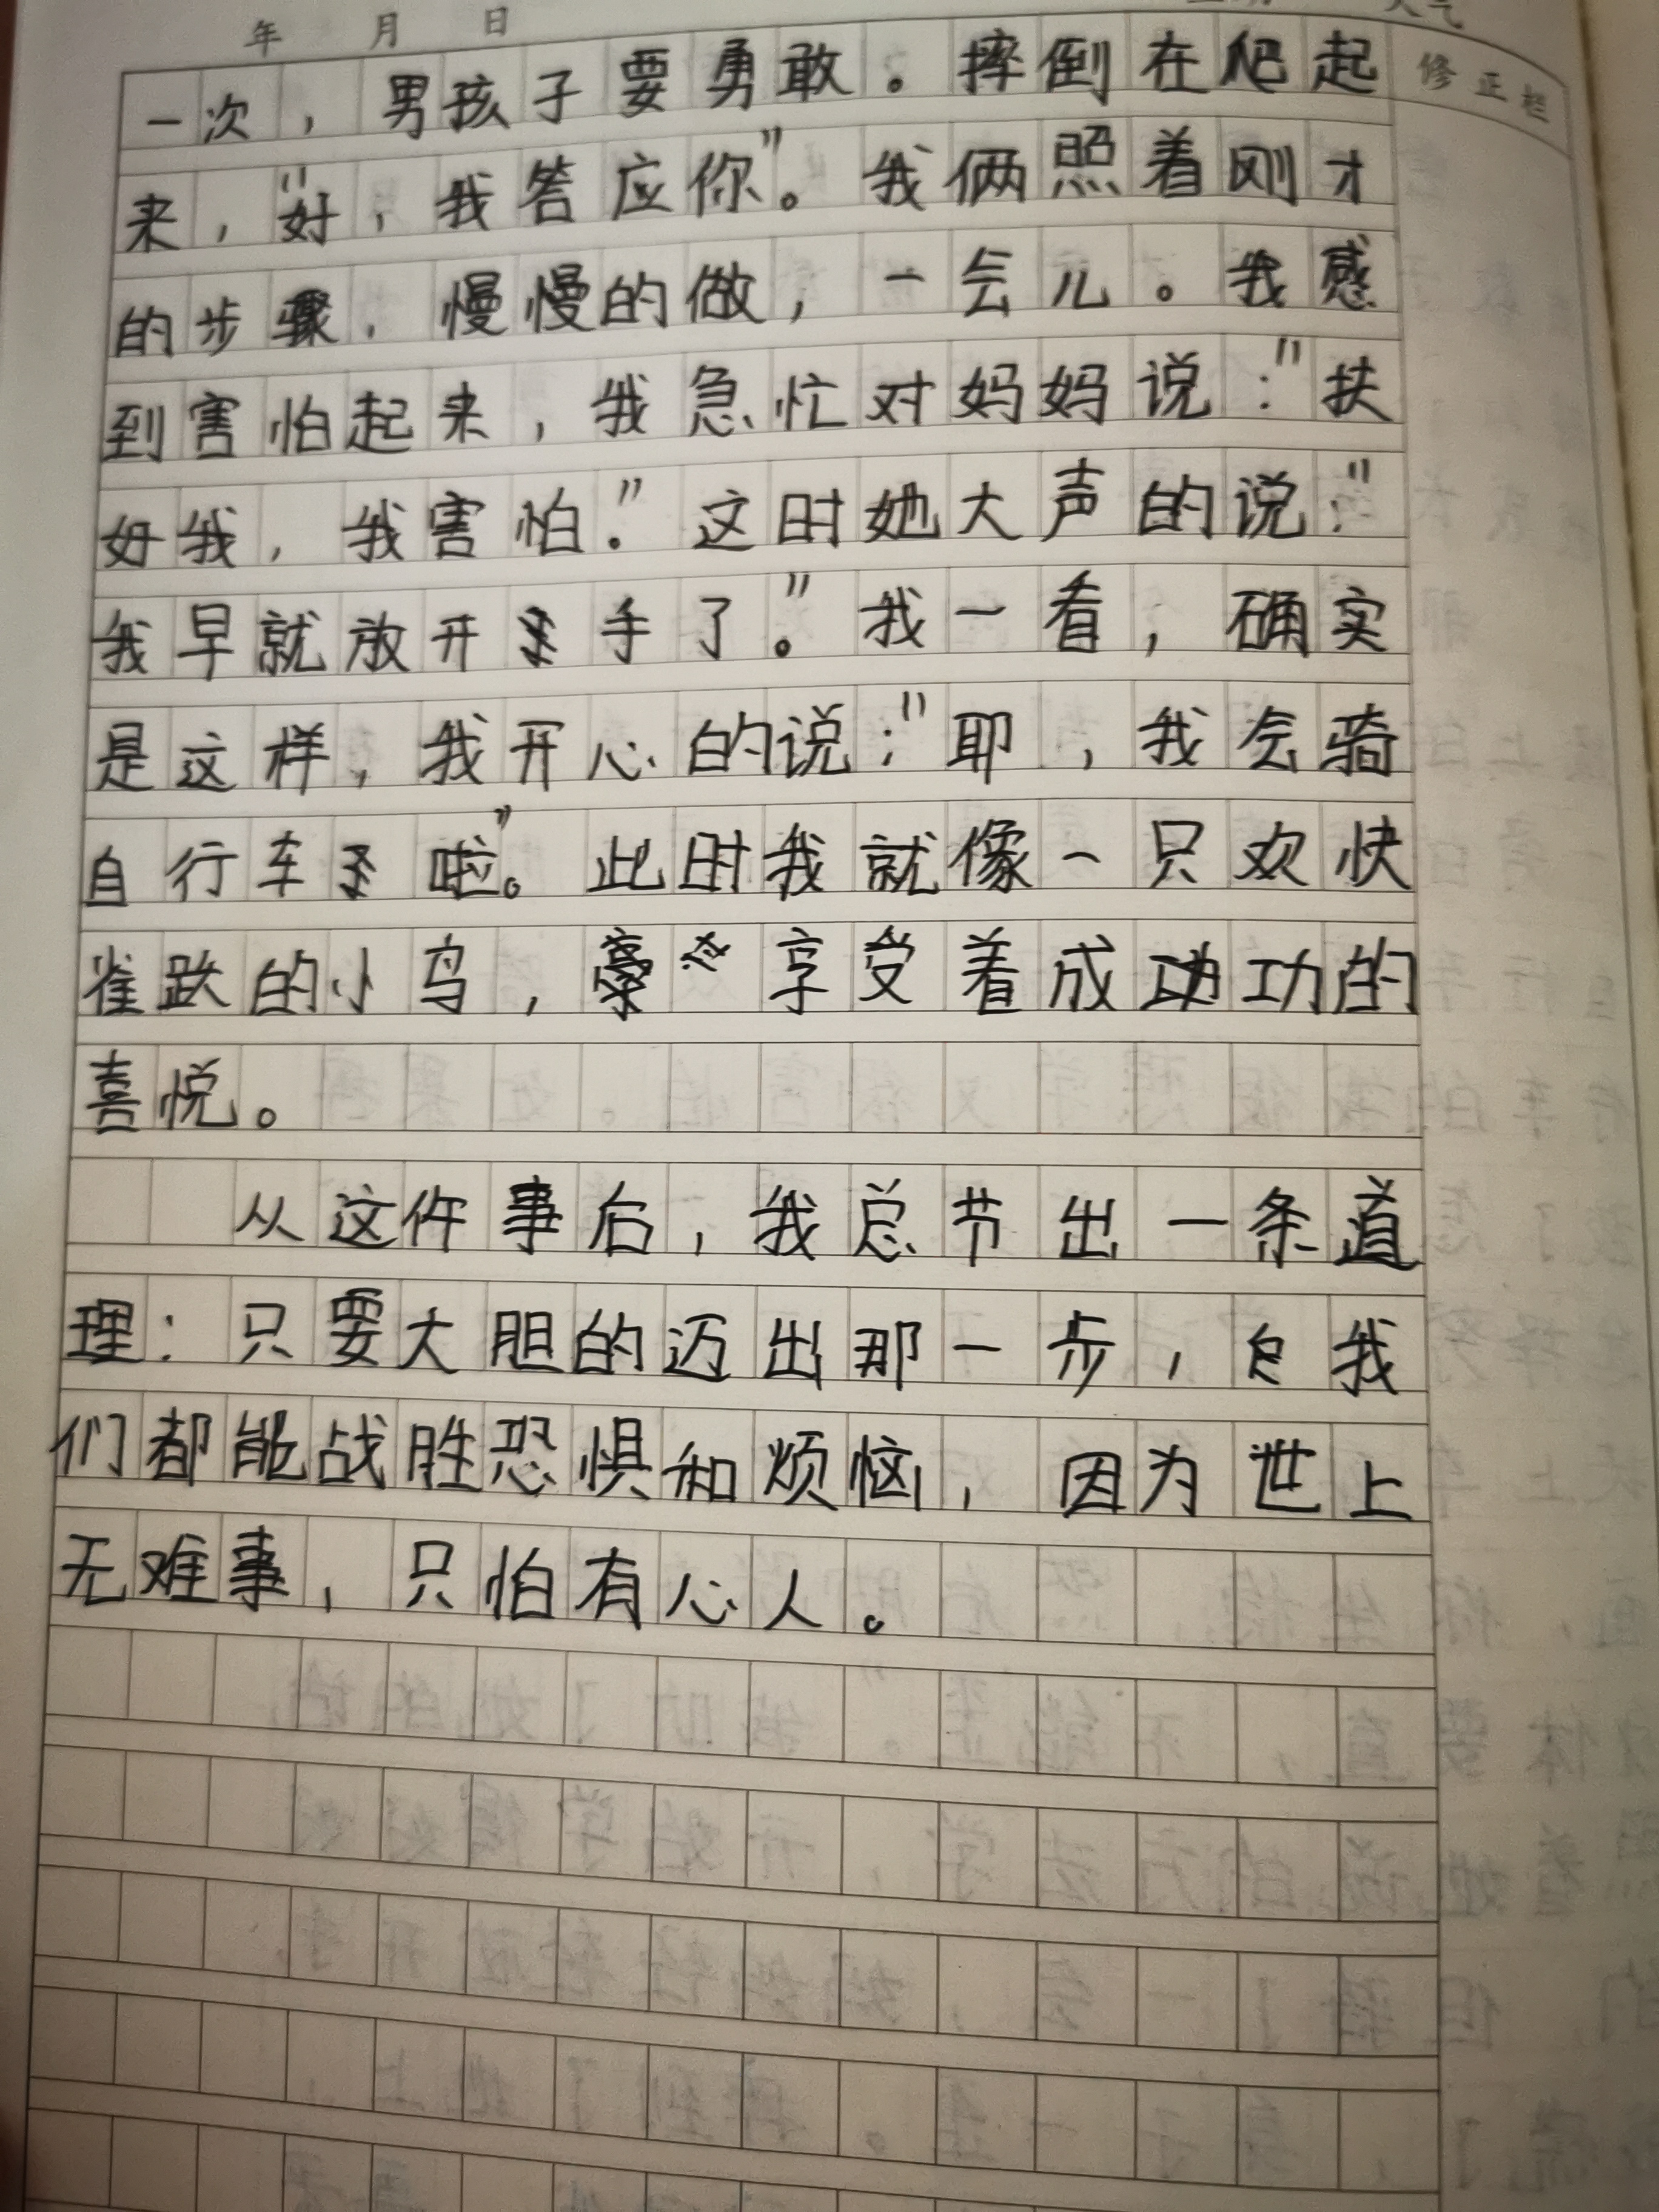 年 月 日 天气
修正栏
一次，男孩子要勇敢。摔倒在爬起
来，"好，我答应你"。我俩照着刚才
的步骤，慢慢的做，一会儿。我感
到害怕起来，我急忙对妈妈说："扶
好我，我害怕."这时她大声的说："
我早就放开手了。"我一看，确实
是这样，我开心的说："耶，我会骑
自行车啦"。此时我就像一只欢快
雀跃的小鸟，享受着成功的
喜悦。
从这件事后，我总节出一条道
理：只要大胆的迈出那一步，我
们都能战胜恐惧和烦恼，因为世上
无难事，只怕有心人。